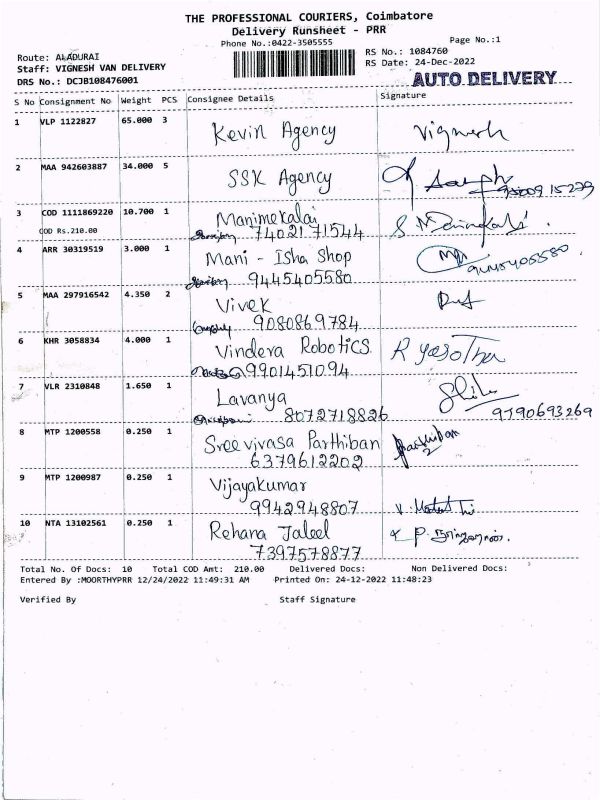 THE PROFESSIONAL COURIERS, Coimbatore
Delivery Runsheet - PRR
Phone No.:0422-3505555
Page No.:1
Route: ALADURAI
RS No.: 1084760
Staff: VIGNESH VAN DELIVERY
RS Date: 24-Dec-2022
DRS No.: DCJB108476001
AUTO DELIVERY
S No Consignment No Weight PCS Consignee Details Signature
1 VLP 1122827 65.000 3 Kevin Agency Vignesh
2 MAA 942603887 34.000 5 SSK Agency
3 COD 1111869220 10.700 1 Manimekalai
COD Rs.210.00 7402171544
4 ARR 30319519 3.000 1 Mani - Isha Shop
9445405580 9445405580
5 MAA 297916542 4.350 2 Vivek
9080869784
6 KHR 3058834 4.000 1 Vindera Robotics R Yasotha
9901451094
7 VLR 2310848 1.650 1 Lavanya
8072718826 9790693269
8 MTP 1200558 0.250 1 Sreevivasa Parthiban Parthiban
6379612202
9 MTP 1200987 0.250 1 Vijayakumar
9942948807
10 NTA 13102561 0.250 1 Rehana Jaleel
7397578877
Total No. Of Docs: 10 Total COD Amt: 210.00 Delivered Docs: Non Delivered Docs:
Entered By :MOORTHYPRR 12/24/2022 11:49:31 AM Printed On: 24-12-2022 11:48:23
Verified By Staff Signature